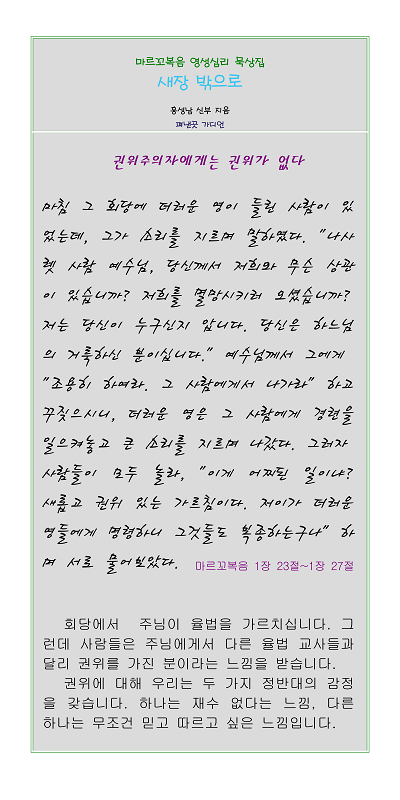 마르꼬복음 영성심리 묵상집
새장 밖으로
홍성남 신부 지음
펴낸곳 가디언
권위주의자에게는 권위가 없다
마침 그 회당에 더러운 영이 들린 사람이 있
었는데, 그가 소리를 지르며 말하였다. "나자
렛 사람 예수님, 당신께서 저희와 무슨 상관
이 있습니까? 저희를 멸망시키러 오셨습니까?
저는 당신이 누구신지 압니다. 당신은 하느님
의 거룩하신 분이십니다." 예수님께서 그에게
"조용히 하여라. 그 사람에게서 나가라" 하고
꾸짖으시니, 더러운 영은 그 사람에게 경련을
일으켜놓고 큰 소리를 지르며 나갔다. 그러자
사람들이 모두 놀라, "이게 어찌된 일이냐?
새롭고 권위 있는 가르침이다. 저이가 더러운
영들에게 명령하니 그것들도 복종하는구나" 하
며 서로 물어보았다. 마르꼬복음 1장 23절~1장 27절
회당에서 주님이 율법을 가르치십니다. 그
런데 사람들은 주님에게서 다른 율법 교사들과
달리 권위를 가진 분이라는 느낌을 받습니다.
권위에 대해 우리는 두 가지 정반대의 감정
을 갖습니다. 하나는 재수 없다는 느낌, 다른
하나는 무조건 믿고 따르고 싶은 느낌입니다.